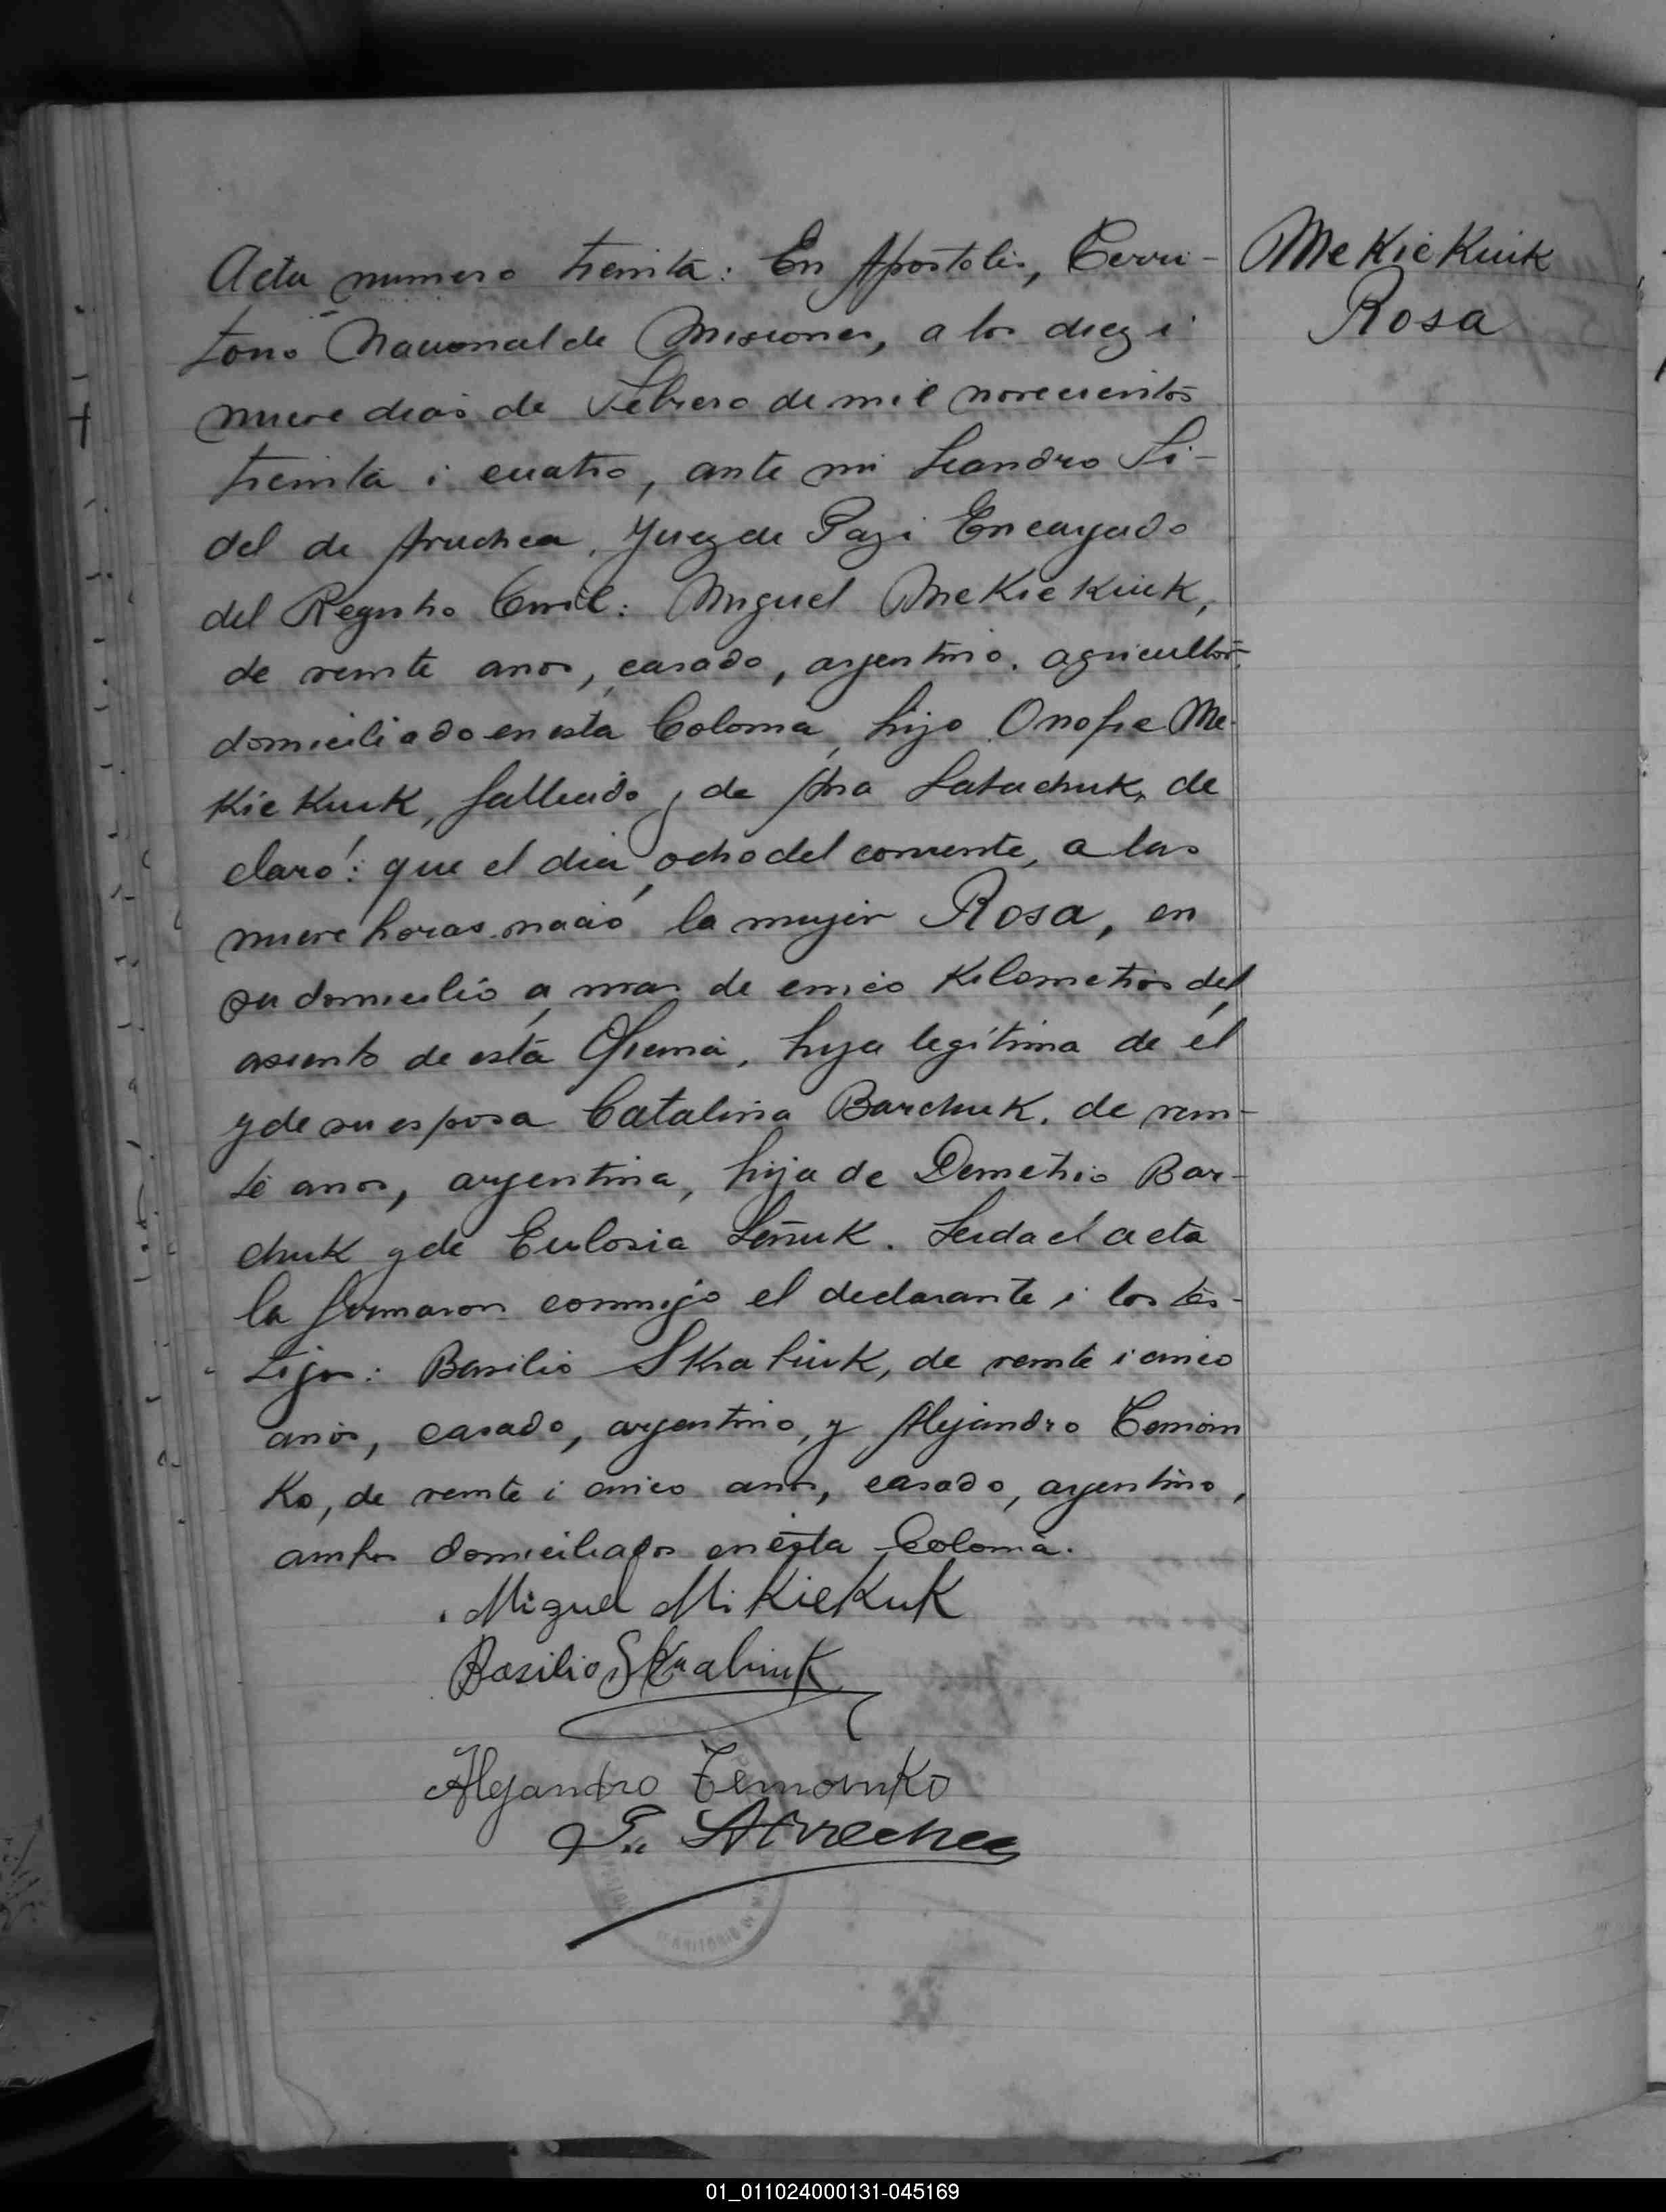 Acta numero treinta: En Apostoles, Terri-
torio Nacional de Misiones, a los diez i
nueve dias de Febrero de mil novecientos
treinta i cuatro, ante mi Leandro Fi-
del de Arrechea, Juez de Paz i Encargado
del Registro Civil: Miguel MeKieKiuk,
de veinte anos, casado, argentino, agricultor,
domiciliado en esta Colonia, hijo Onofre Me-
KieKuuk, fallecido y de Ana Latachuk, de
claró: que el dia ocho del corriente, a las
nueve horas nació la mujer Rosa, en
su domicilio a mas de cinco Kilometros del
asiento de esta Oficina, hija legítima de él
y de su esposa Catalina Barchuk, de vein-
te anos, argentina, hija de Demetrio Bar-
chuk y de Eulosia Leñuk. Leida el acta
la firmaron conmigo el declarante i los tes-
tigos: Basilio Skrabiuk, de veinte i cinco
anos, casado, argentino, y Alejandro Temoin
Ko, de veinte i cinco anos, casado, argentino,
ambos domiciliados en esta Colonia.
Miguel MiKieKuK
Basilio SKrabiuk
Alejandro TemoinKo
Arrechea
MeKieKiuk
Rosa
TERRITORIO DE
01_011024000131-045169